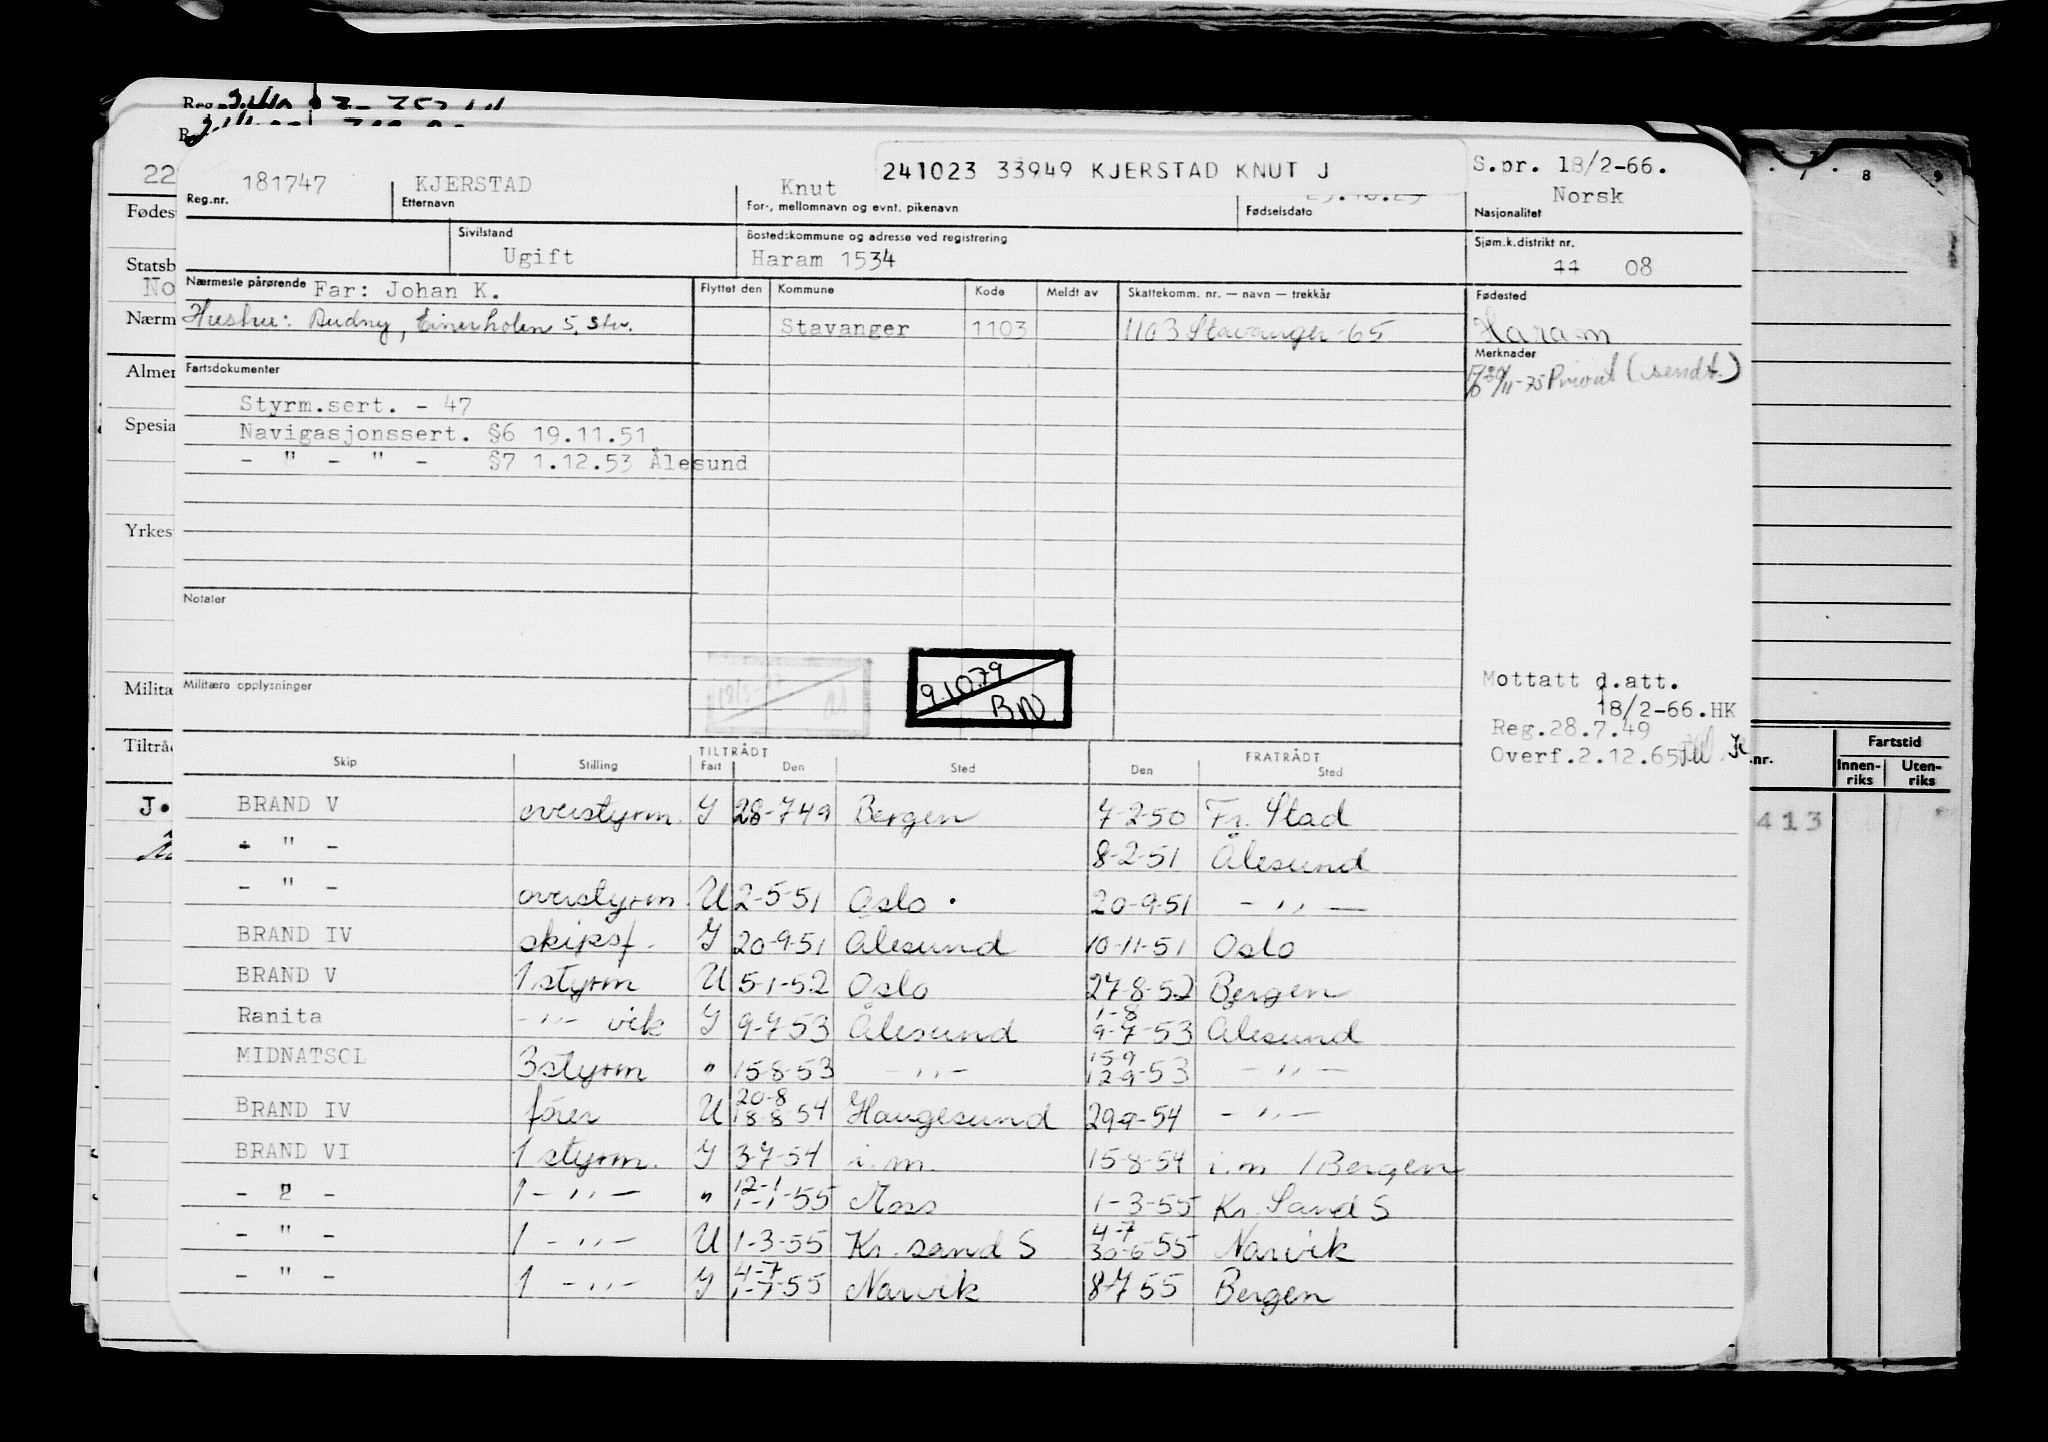 241023 33949 KJERSTAD KNUT J
S.pr. 18/2-66.
181747 KJERSTAD Knut Norsk
Reg.nr. Etternavn For-, mellomnavn og evnt. pikenavn Fødselsdato Nasjonalitet
Sivilstand Bostedskommune og adresse ved registrering Sjøm.k.distrikt nr.
Ugift Haram 1534 11 08
Nærmeste pårørende Far: Johan K. Flyttet den Kommune Kode Meldt av Skattekomm. nr. — navn — trekkår Fødested
Hustru: Budny, Einerholen 5, Stv. Stavanger 1103 1103 Stavanger-65 Haram
Merknader
Fartsdokumenter
30/11-75 Privat (sendt.)
Styrm.sert. - 47
Navigasjonssert. §6 19.11.51
- " - " - §7 1.12.53 Ålesund
Notater
Militære opplysninger
9.10.79
BN
Mottatt d.att.
18/2-66.HK
Reg.28.7.49
Overf.2.12.65
Skip Stilling TILTRÅDT Fart Den Sted FRATRÅDT Den Sted
BRAND V overstyrm. I 28-749 Bergen 7-2-50 Fr. Stad
- " - 8-2-51 Ålesund
- " - overstyrm. U 2-5-51 Oslo 20-9-51 - ,, -
BRAND IV skipsf. I 20-9-51 Ålesund 10-11-51 Oslo
BRAND V 1 styrm U 5-1-52 Oslo 27-8-52 Bergen
Ranita - ,, - vik I 9-7-53 Ålesund 1-8 9-7-53 Ålesund
MIDNATSOL 3 styrm " 15-8-53 - ,, - 15-9 12-9-53 - ,, -
BRAND IV fører U 20-8 18-8-54 Haugesund 29-9-54 - ,, -
BRAND VI 1 styrm. I 3-7-54 i.m. 15-8-54 i.m /Bergen
- " - 1 - ,, - " 12-1 1-1-55 Moss 1-3-55 Kr. Sand S
- " - 1 - ,, - U 1-3-55 Kr. sand S 4-7 30-6-55 Narvik
- " - 1 - ,, - I 4-7 1-7-55 Narvik 8-7 55 Bergen
22
Fødes
Statsb
No
Nærm
Almer
Spesia
Yrkes
Militæ
Tiltråd
J.
8 9
nr.
Fartstid
Innen-riks Uten-riks
413